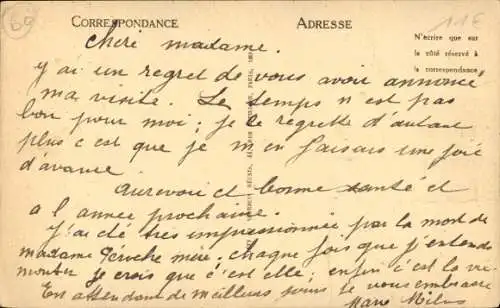 69
CORRESPONDANCE
ADRESSE
11E
N'écrire que sur
le côté réservé à
la correspondance
Chère madame.
y ai un regret de vous avoir annoncé
ma visite. Le temps n est pas
bon pour moi; je le regrette d'autant
plus c'est que je m'en faisais une joie
d'avance.
aurevoir et bonne santé et
a l annee prochaine.
J'ai été très impressionnée par la mort de
madame mère; chaque fois que j'entends
monter je crois que c'est elle; enfin c'est la vie
En attendant de meilleurs jours je vous embrasse
Marie